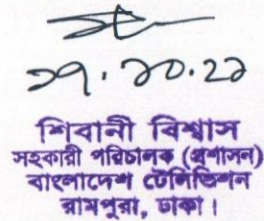 ২৭.১০.২১
শিবানী বিশ্বাস
সহকারী পরিচালক (প্রশাসন)
বাংলাদেশ টেলিভিশন
রামপুরা, ঢাকা।